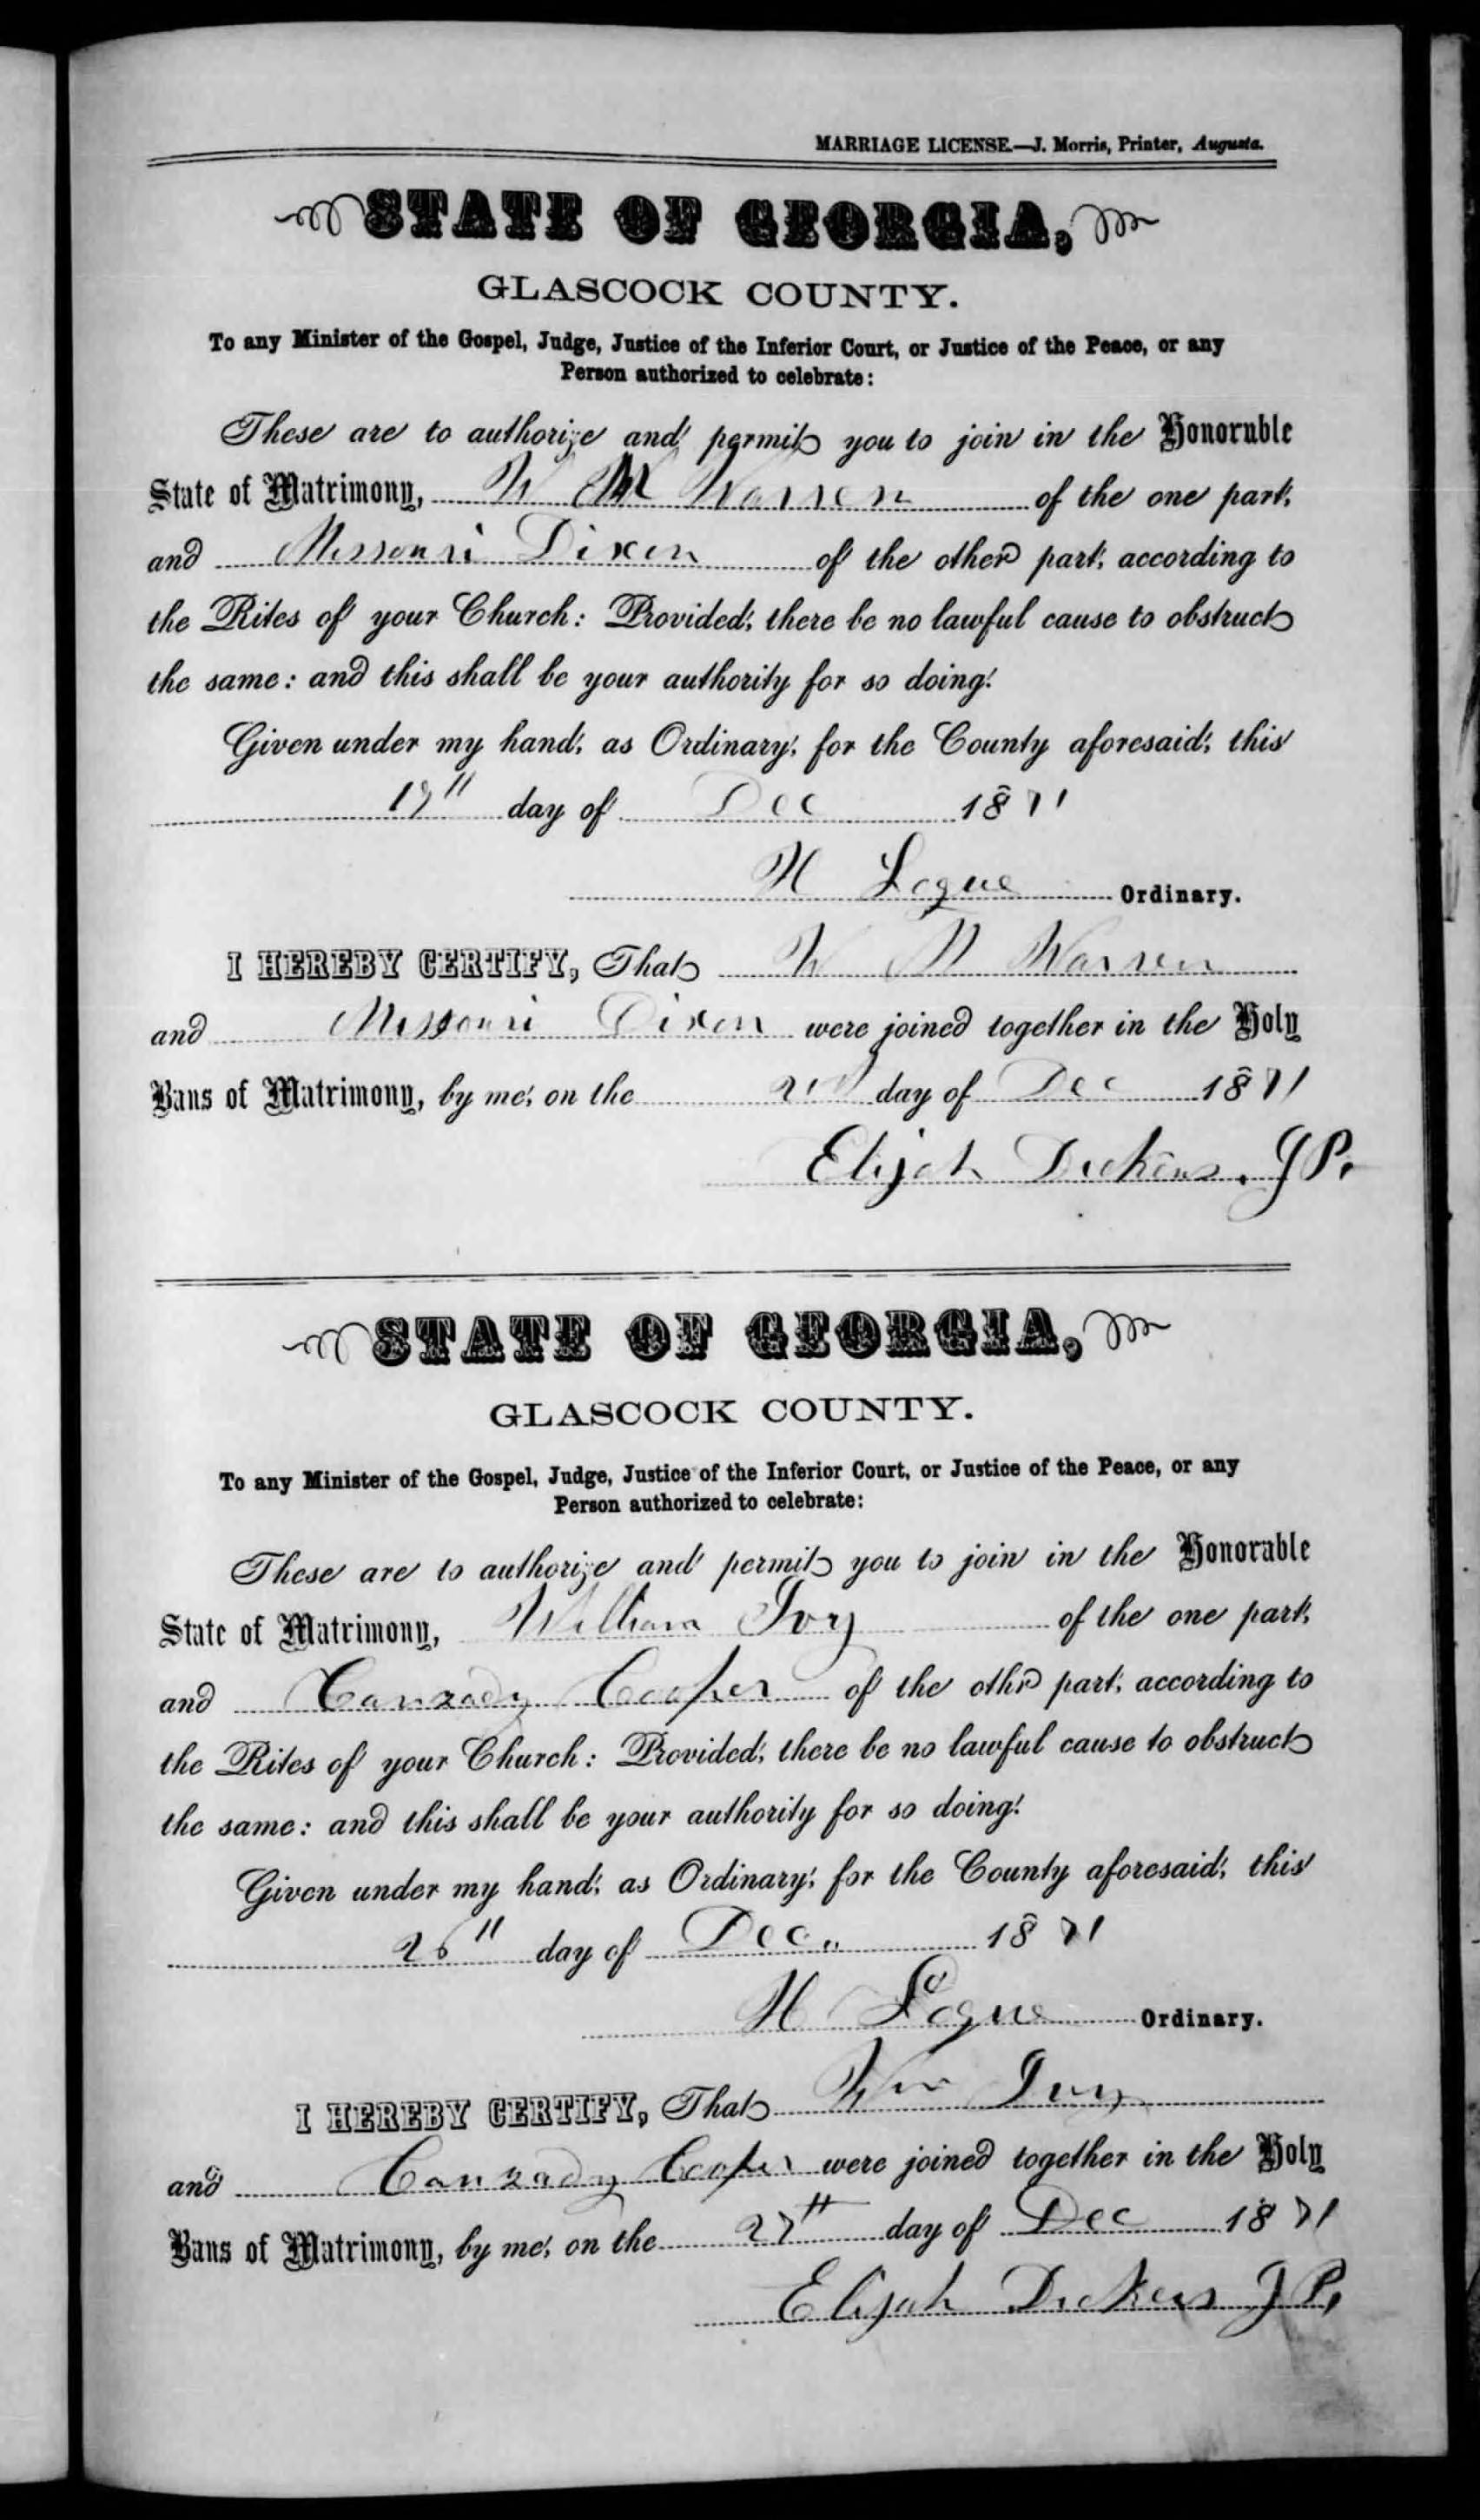 MARRIAGE LICENSE.—J. Morris, Printer, Augusta.
STATE OF GEORGIA,
GLASCOCK COUNTY.
To any Minister of the Gospel, Judge, Justice of the Inferior Court, or Justice of the Peace, or any
Person authorized to celebrate:
These are to authorize and permit you to join in the Honorable
State of Matrimony, W M Warren of the one part,
and Missouri Dixon of the other part, according to
the Rites of your Church: Provided, there be no lawful cause to obstruct
the same: and this shall be your authority for so doing.
Given under my hand, as Ordinary, for the County aforesaid, this
day of Dec 1871
H Logue Ordinary.
I HEREBY CERTIFY, That W Warren
and Missouri Dixon were joined together in the Holy
Bans of Matrimony, by me, on the day of Dec 1871
Elijah Dickens. JP.
STATE OF GEORGIA,
GLASCOCK COUNTY.
To any Minister of the Gospel, Judge, Justice of the Inferior Court, or Justice of the Peace, or any
Person authorized to celebrate:
These are to authorize and permit you to join in the Honorable
State of Matrimony, William Ivy of the one part,
and Canzady Cooper of the othr part, according to
the Rites of your Church: Provided, there be no lawful cause to obstruct
the same: and this shall be your authority for so doing.
Given under my hand, as Ordinary, for the County aforesaid, this
26" day of Dec" 1871
H Logue Ordinary.
I HEREBY CERTIFY, That Wm Ivy
and Canzady Cooper were joined together in the Holy
Bans of Matrimony, by me, on the 27th day of Dec 1871
Elijah Dickens JP,